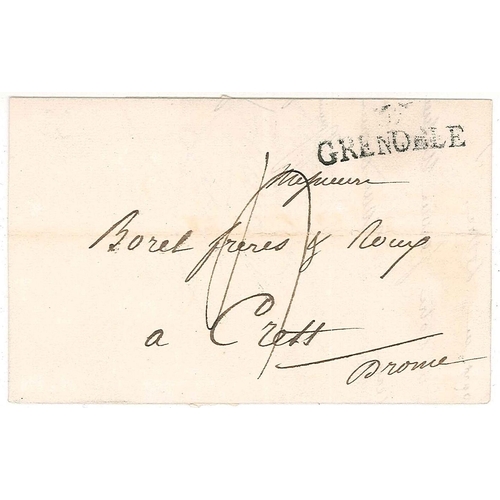 GRENOBLE
Messieurs
Borel frères & Roux
a Crest
Drome